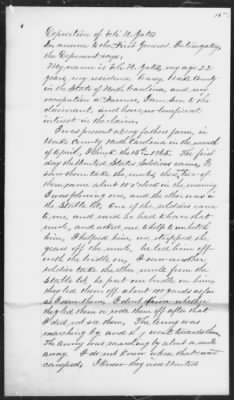 Deposition of Eli N. Yates
In answer to the First General Interrogatory
the Deponent says:
My name is Eli N. Yates, my age 22
years, my residence Cary Wake County
in the State of North Carolina and my
occupation a Farmer, I am Son to the
claimant, and have no beneficial
interest in the claim.
I was present at my fathers farm, in
Wake County North Carolina in the month
of April, I think the 15th 1865. The first
day the United States Soldiers came, I
saw them take the mules, two of
them, and about 10 o'clock in the morning
I was plowing one, and the other was in
the Stable lot, One of the soldiers came
to me, and said he had to have that
mule, and asked me to help to unhitch
him, I helped him, we stripped the
gears off the mule, he led him off
with the bridle on, I saw another
soldier take the other mule from the
Stable lot, he put one bridle on him,
they led them off about 100 yards as far
as I seen them, I dont know whether
they led them or rode them off after that
I did not see them, The army was
marching by and
The army was marching by about a mile
away. I do not know where that
camped. I know they were United